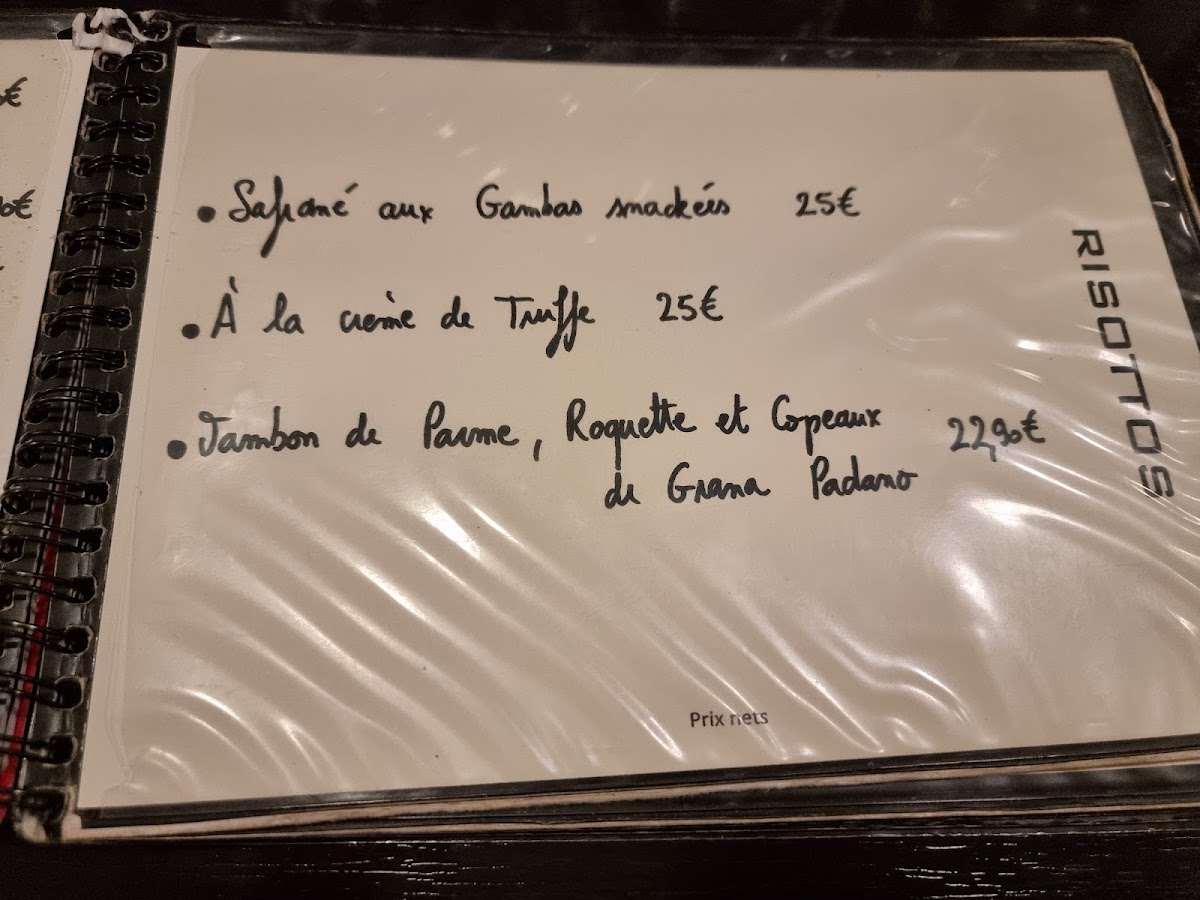 • Safrané aux Gambas snackées 25€
• À la crème de Truffe 25€
• Jambon de Parme, Roquette et Copeaux 22,90€
de Grana Padano
RISOTTOS
Prix nets